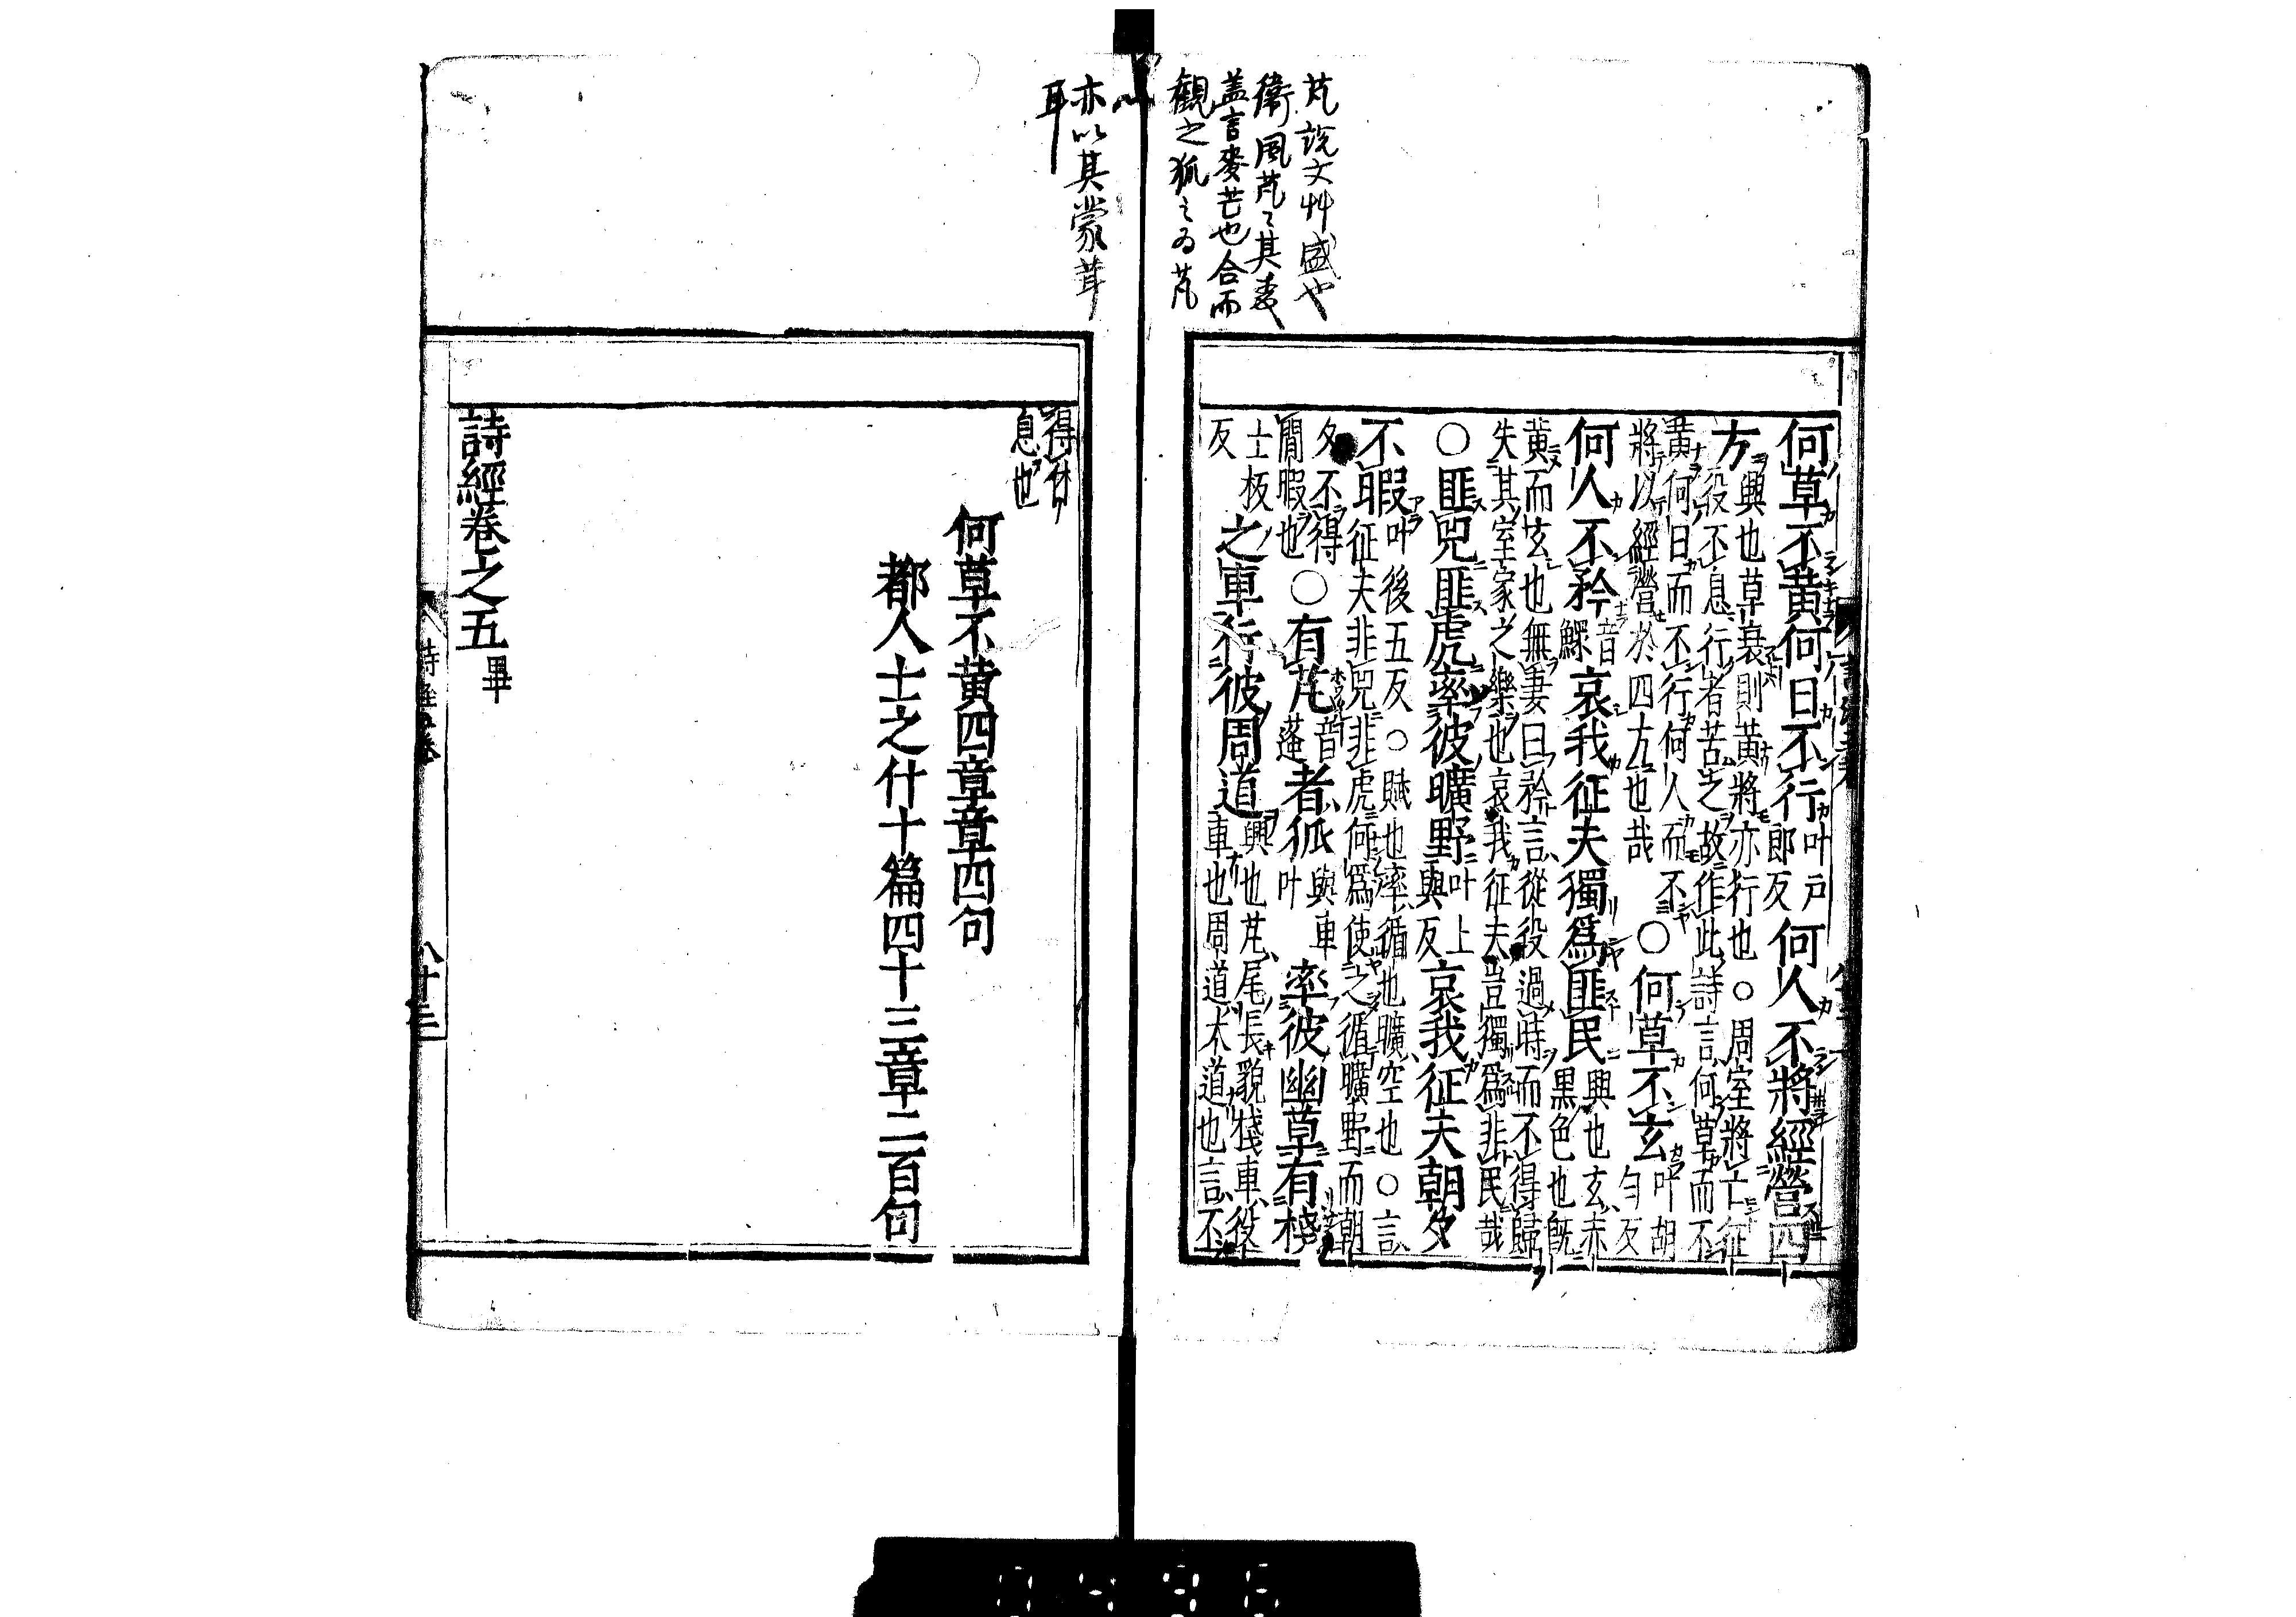 芃説文艸盛也
衞風芃〻其麥
盖言麥芒也合而
觀之狐之為芃
亦以其蒙茸
耳
何草不黃何日不行叶戶郎反何人不將經營四
方興也草衰則黃將亦行也○周室將亡征
役不息行者苦之故作此詩言何草而不
黃何日而不行何人而不
將以經營於四方也哉○何草不玄叶胡勻反
何人不矜音鰥哀我征夫獨爲匪民興也玄赤黑色也旣
黃而玄也無妻曰矜言從役過時而不得歸
失其室家之樂也哀我征夫豈獨爲非民哉
○匪兕匪虎率彼曠野叶上與反哀我征夫朝夕
不暇叶後五反○賦也率循也曠空也○言
征夫非兕非虎何爲使之循曠野而朝
夕不得閒暇也○有芃音蓬者狐叶與車率彼幽草有棧
士板反之車行彼周道興也芃尾長貌棧車役
車也周道大道也言不
得休
息也
何草不黃四章章四句
都人士之什十篇四十三章二百句
詩經卷之五畢
八十三